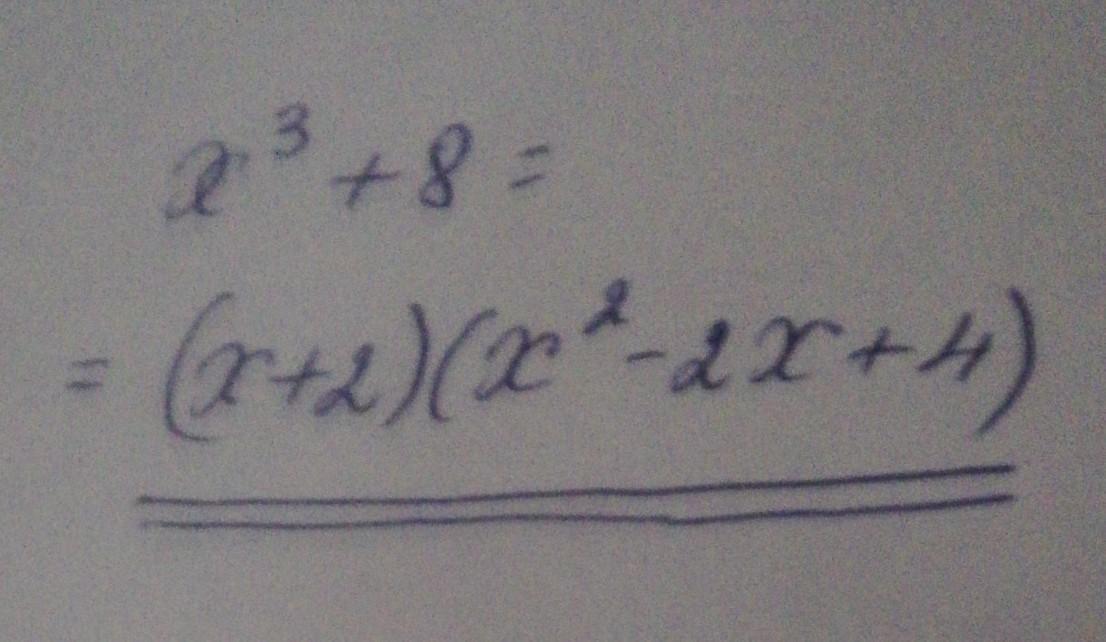 x³ + 8 =
= (x+2)(x² - 2x + 4)